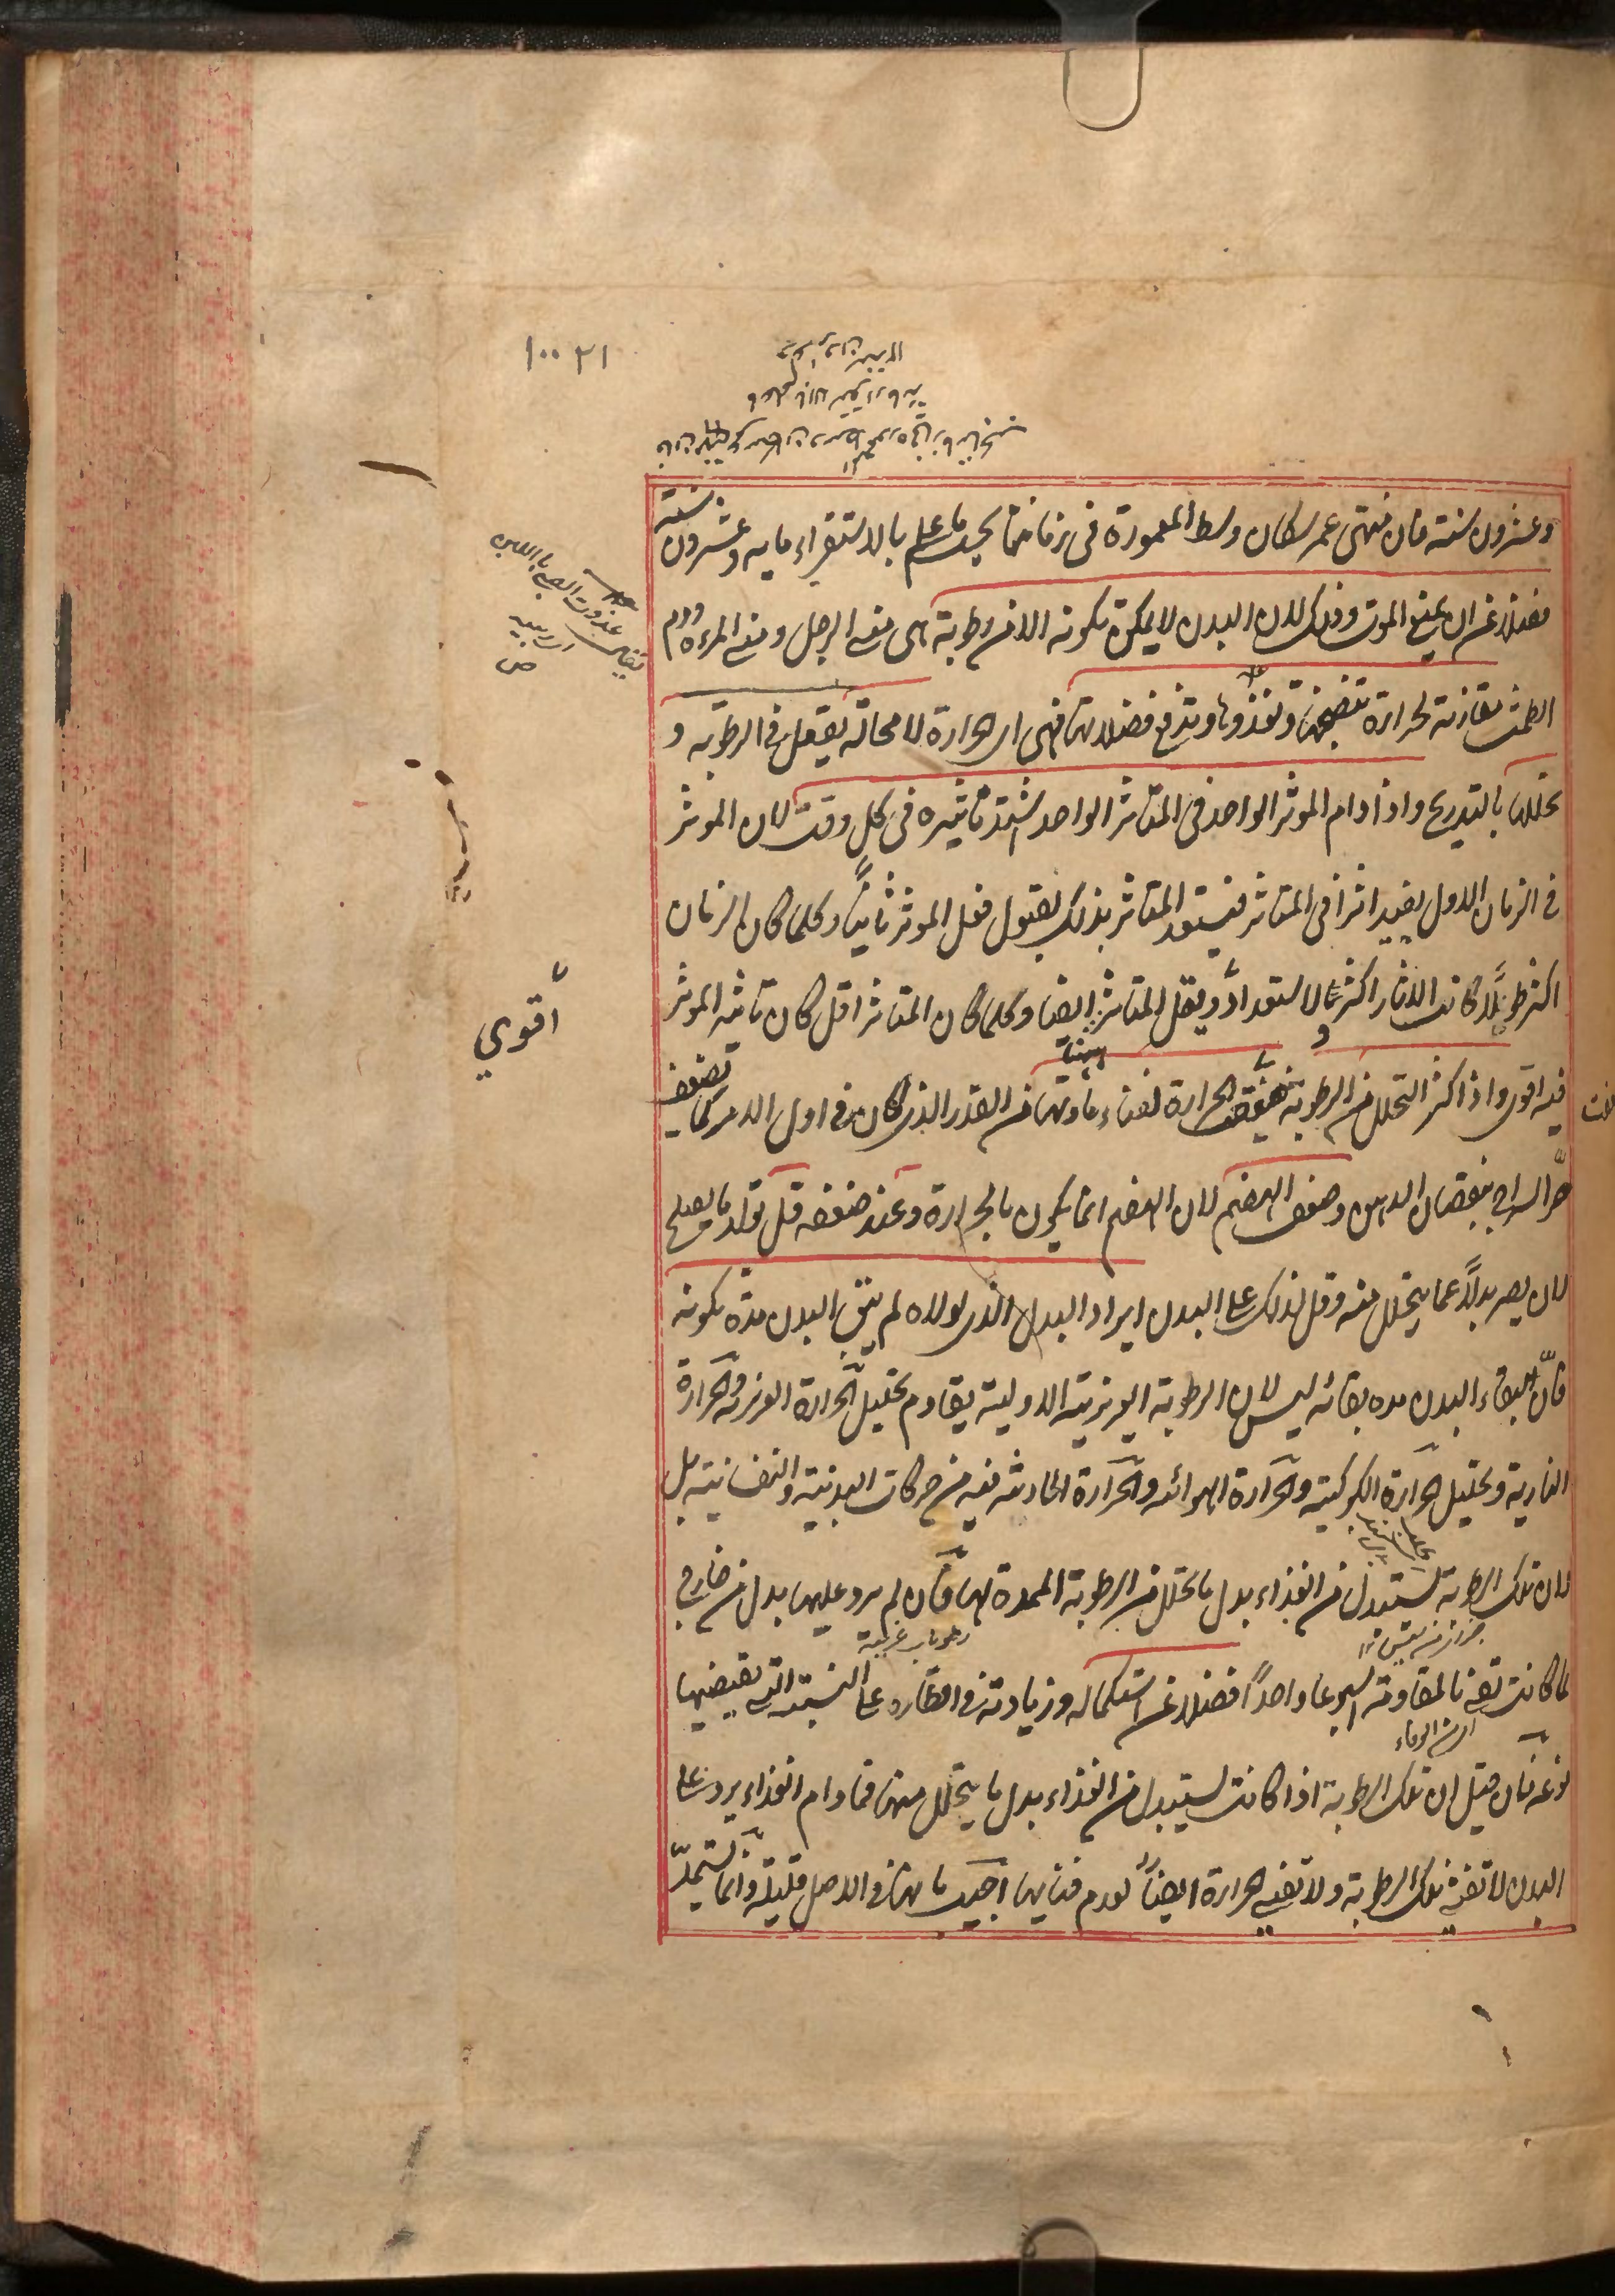 ١٠٠٢١
وعشرون سنة فان منتهى عمر سكان وسط المعمورة فى زماننا بحسب ما علم بالاستقراء مايه وعشرون سنة
فضلا عن ان يمنع الموت وذلك لان البدن لا يمكن تكونه الا من رطوبة هى منى الرجل ومنى المراة ودم
الطمث مقارنة لحرارة تنضجها وتغذوها وتدفع فضلاتها فهى اى الحرارة لا محالة يفعل فى الرطوبه و
تحللها بالتدريج واذا دام الموثر الواحد فى المتاثر الواحد اشتد تاثيره فى كل وقت لان الموثر
فى الزمان الاول يفيد اثرا فى المتاثر فيستعد المتاثر بذلك لقبول فعل الموثر ثانيا وكلما كان الزمان
اكثر طولا كانت الاثار اكثر والاستعداد ويقل المتاثر ايضا وكلما كان المتاثر اقل كان تاثير الموثر
أقوي
فيه اقوى واذا كثر التحلل من الرطوبة ضعفت الحرارة لفناء مادتها من القدر الذى كان فى اول الامر كما يضعف
حر السراج بنقصان الدهن وضعف الهضم لان الهضم انما يكون بالحرارة وعند ضعفه قل تولد ما يصلح
لان يصير بدلا عما يتحلل منه وقل لذلك على البدن ايراد البدل الذى لولاه لم يبق البدن مدة تكونه
فان بقاء البدن مده بقائه ليس لان الرطوبة الغريزية الاولية يقاوم تحليل الحرارة الغريزية والحرارة
النارية وتحليل الحرارة الكوكبية والحرارة الهوائه والحرارة الحادثه فيه من حركات البدنية والنفسانية بل
لان تلك الرطوبة تستبدل من الغذاء بدل ما تحلل من الرطوبة الممدة لها فان لم يرد عليها بدل من خارج
رطوبات غريبة
لما كانت تفى بالمقاومة اسبوعا واحدا فضلا عن استكماله وزيادته فى اقطاره على النسبة التى يقتضيها
نوعه فان قيل ان تلك الرطوبة اذا كانت تستبدل من الغذاء بدل ما يتحلل منها فما دام الغذاء يرد على
البدن لا تفنى تلك الرطوبة ولا تفنى الحرارة ايضا لعدم فنائها اجيب بانها فى الاصل قليلة وانما تستمد